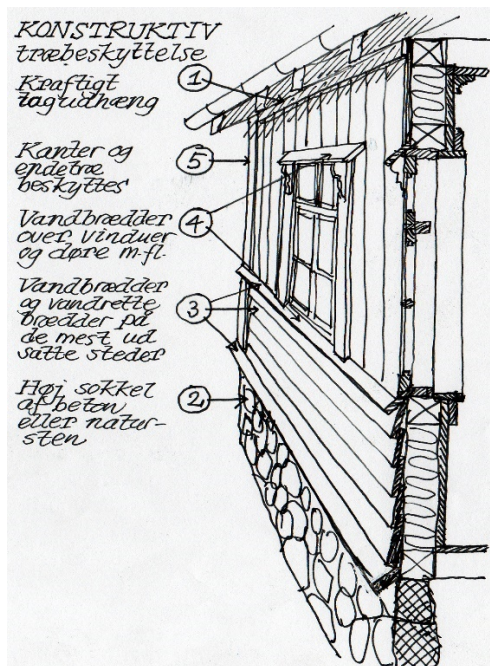 KONSTRUKTIV
træbeskyttelse
Kraftigt
tagudhæng
1
Kanter og
endetræ
beskyttes
5
Vandbrædder
over vinduer
og døre m.fl.
4
Vandbrædder
og vandrette
brædder på
de mest ud
satte steder
3
Høj sokkel
af beton
eller natur-
sten
2